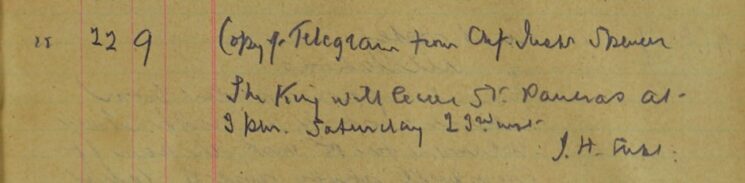 25 22 9 Copy of Telegram from Chf. Insptr Spencer
The King will leave St. Pancras at
3 pm. Saturday 23rd inst.
J. H.